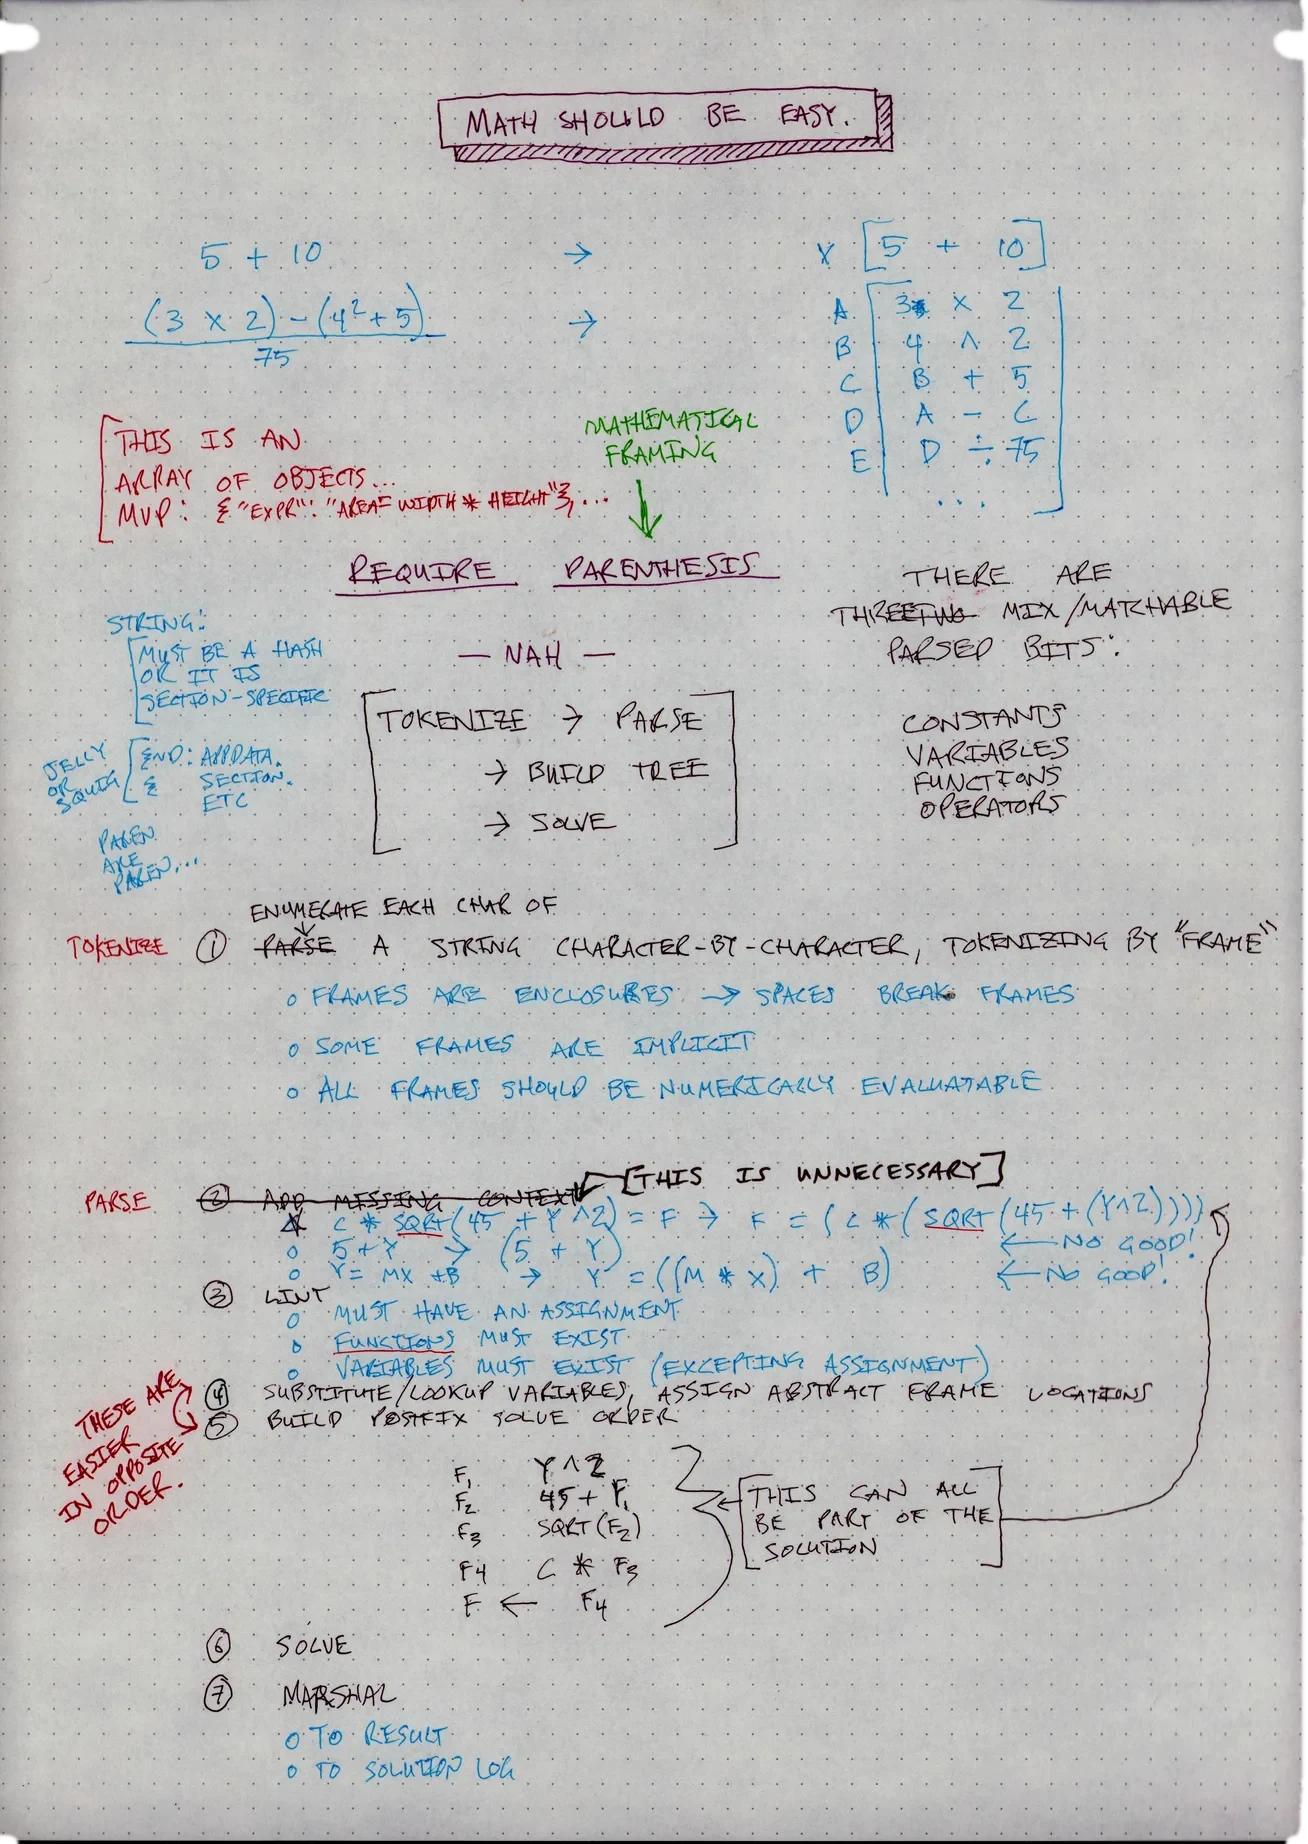 MATH SHOULD BE EASY.
5 + 10 → X [5 + 10]
(3 X 2) - (4² + 5) →
75
A 3 X 2
B 4 ^ 2
C B + 5
D A - C
E D ÷ 75
...
THIS IS AN
ARRAY OF OBJECTS...
MVP: {"EXPR": "AREA= WIDTH * HEIGHT"},...
MATHEMATICAL
FRAMING
REQUIRE PARENTHESIS
— NAH —
TOKENIZE → PARSE
→ BUILD TREE
→ SOLVE
THERE ARE
THREE TWO MIX/MATCHABLE
PARSED BITS:
CONSTANTS
VARIABLES
FUNCTIONS
OPERATORS
STRING:
MUST BE A HASH
OR IT IS
SECTION-SPECIFIC
JELLY
OR
SQUIG
{ND: APPDATA.
{ SECTION.
ETC
PAREN
ARE
PAREN,...
ENUMERATE EACH CHAR OF
TOKENIZE ① PARSE A STRING CHARACTER-BY-CHARACTER, TOKENIZING BY "FRAME"
o FRAMES ARE ENCLOSURES → SPACES BREAK FRAMES
o SOME FRAMES ARE IMPLICIT
o ALL FRAMES SHOULD BE NUMERICALLY EVALUATABLE
[THIS IS UNNECESSARY]
PARSE ② ADD MISSING CONTEXT
C * SQRT(45 + Y^2) = F → F = (C * (SQRT(45 + (Y^2))))
o 5 + Y → (5 + Y) ← NO GOOD!
o Y = MX + B → Y = ((M * X) + B) ← NO GOOD!
③ LINT
o MUST HAVE AN ASSIGNMENT
o FUNCTIONS MUST EXIST
o VARIABLES MUST EXIST (EXCEPTING ASSIGNMENT)
④ SUBSTITUTE/LOOKUP VARIABLES, ASSIGN ABSTRACT FRAME LOCATIONS
⑤ BUILD POSTFIX SOLVE ORDER
THESE ARE
EASIER
IN OPPOSITE
ORDER.
F₁ Y ^ 2
F₂ 45 + F₁
F₃ SQRT(F₂)
F4 C * F₃
F ← F4
THIS CAN ALL
BE PART OF THE
SOLUTION
⑥ SOLVE
⑦ MARSHAL
o TO RESULT
o TO SOLUTION LOG